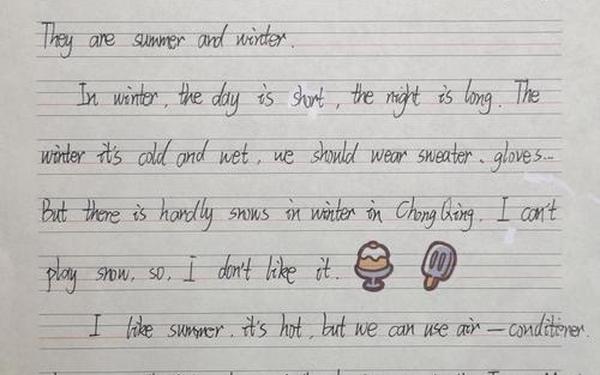 They are summer and winter.
In winter, the day is short, the night is long. The
winter it's cold and wet, we should wear sweater、gloves...
But there is hardly snows in winter in ChongQing. I can't
play snow, so, I don't like it.
I like summer. it's hot, but we can use air—conditioner.